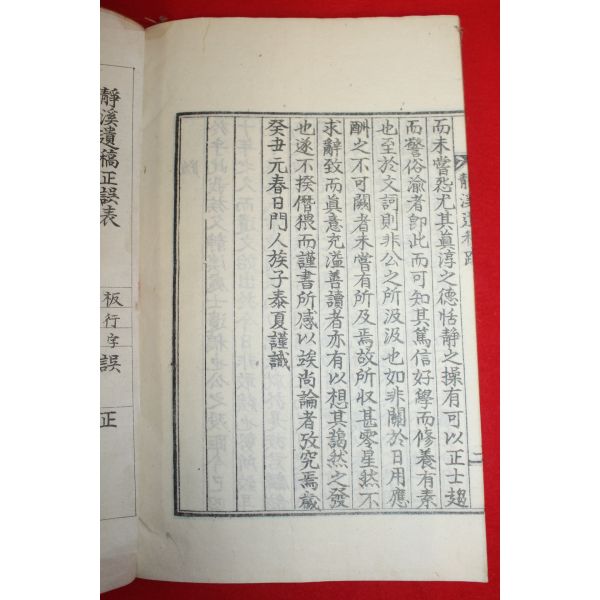 靜溪遺稿跋
二
而未嘗恕尤其眞淳之德恬靜之操有可以正士趨
而警俗渝者卽此而可知其篤信好學而修養有素
也至於文詞則非公之所汲汲也如非關於日用應
酬之不可闕者未嘗有所及焉故所收甚零星然不
求辭致而眞意充溢善讀者亦有以想其藹然之發
也遂不揆僭猥而謹書所感以竢尚論者攷究焉歲
癸丑元春日門人族子泰夏謹識
靜溪遺稿正誤表
板
行
字
誤
正